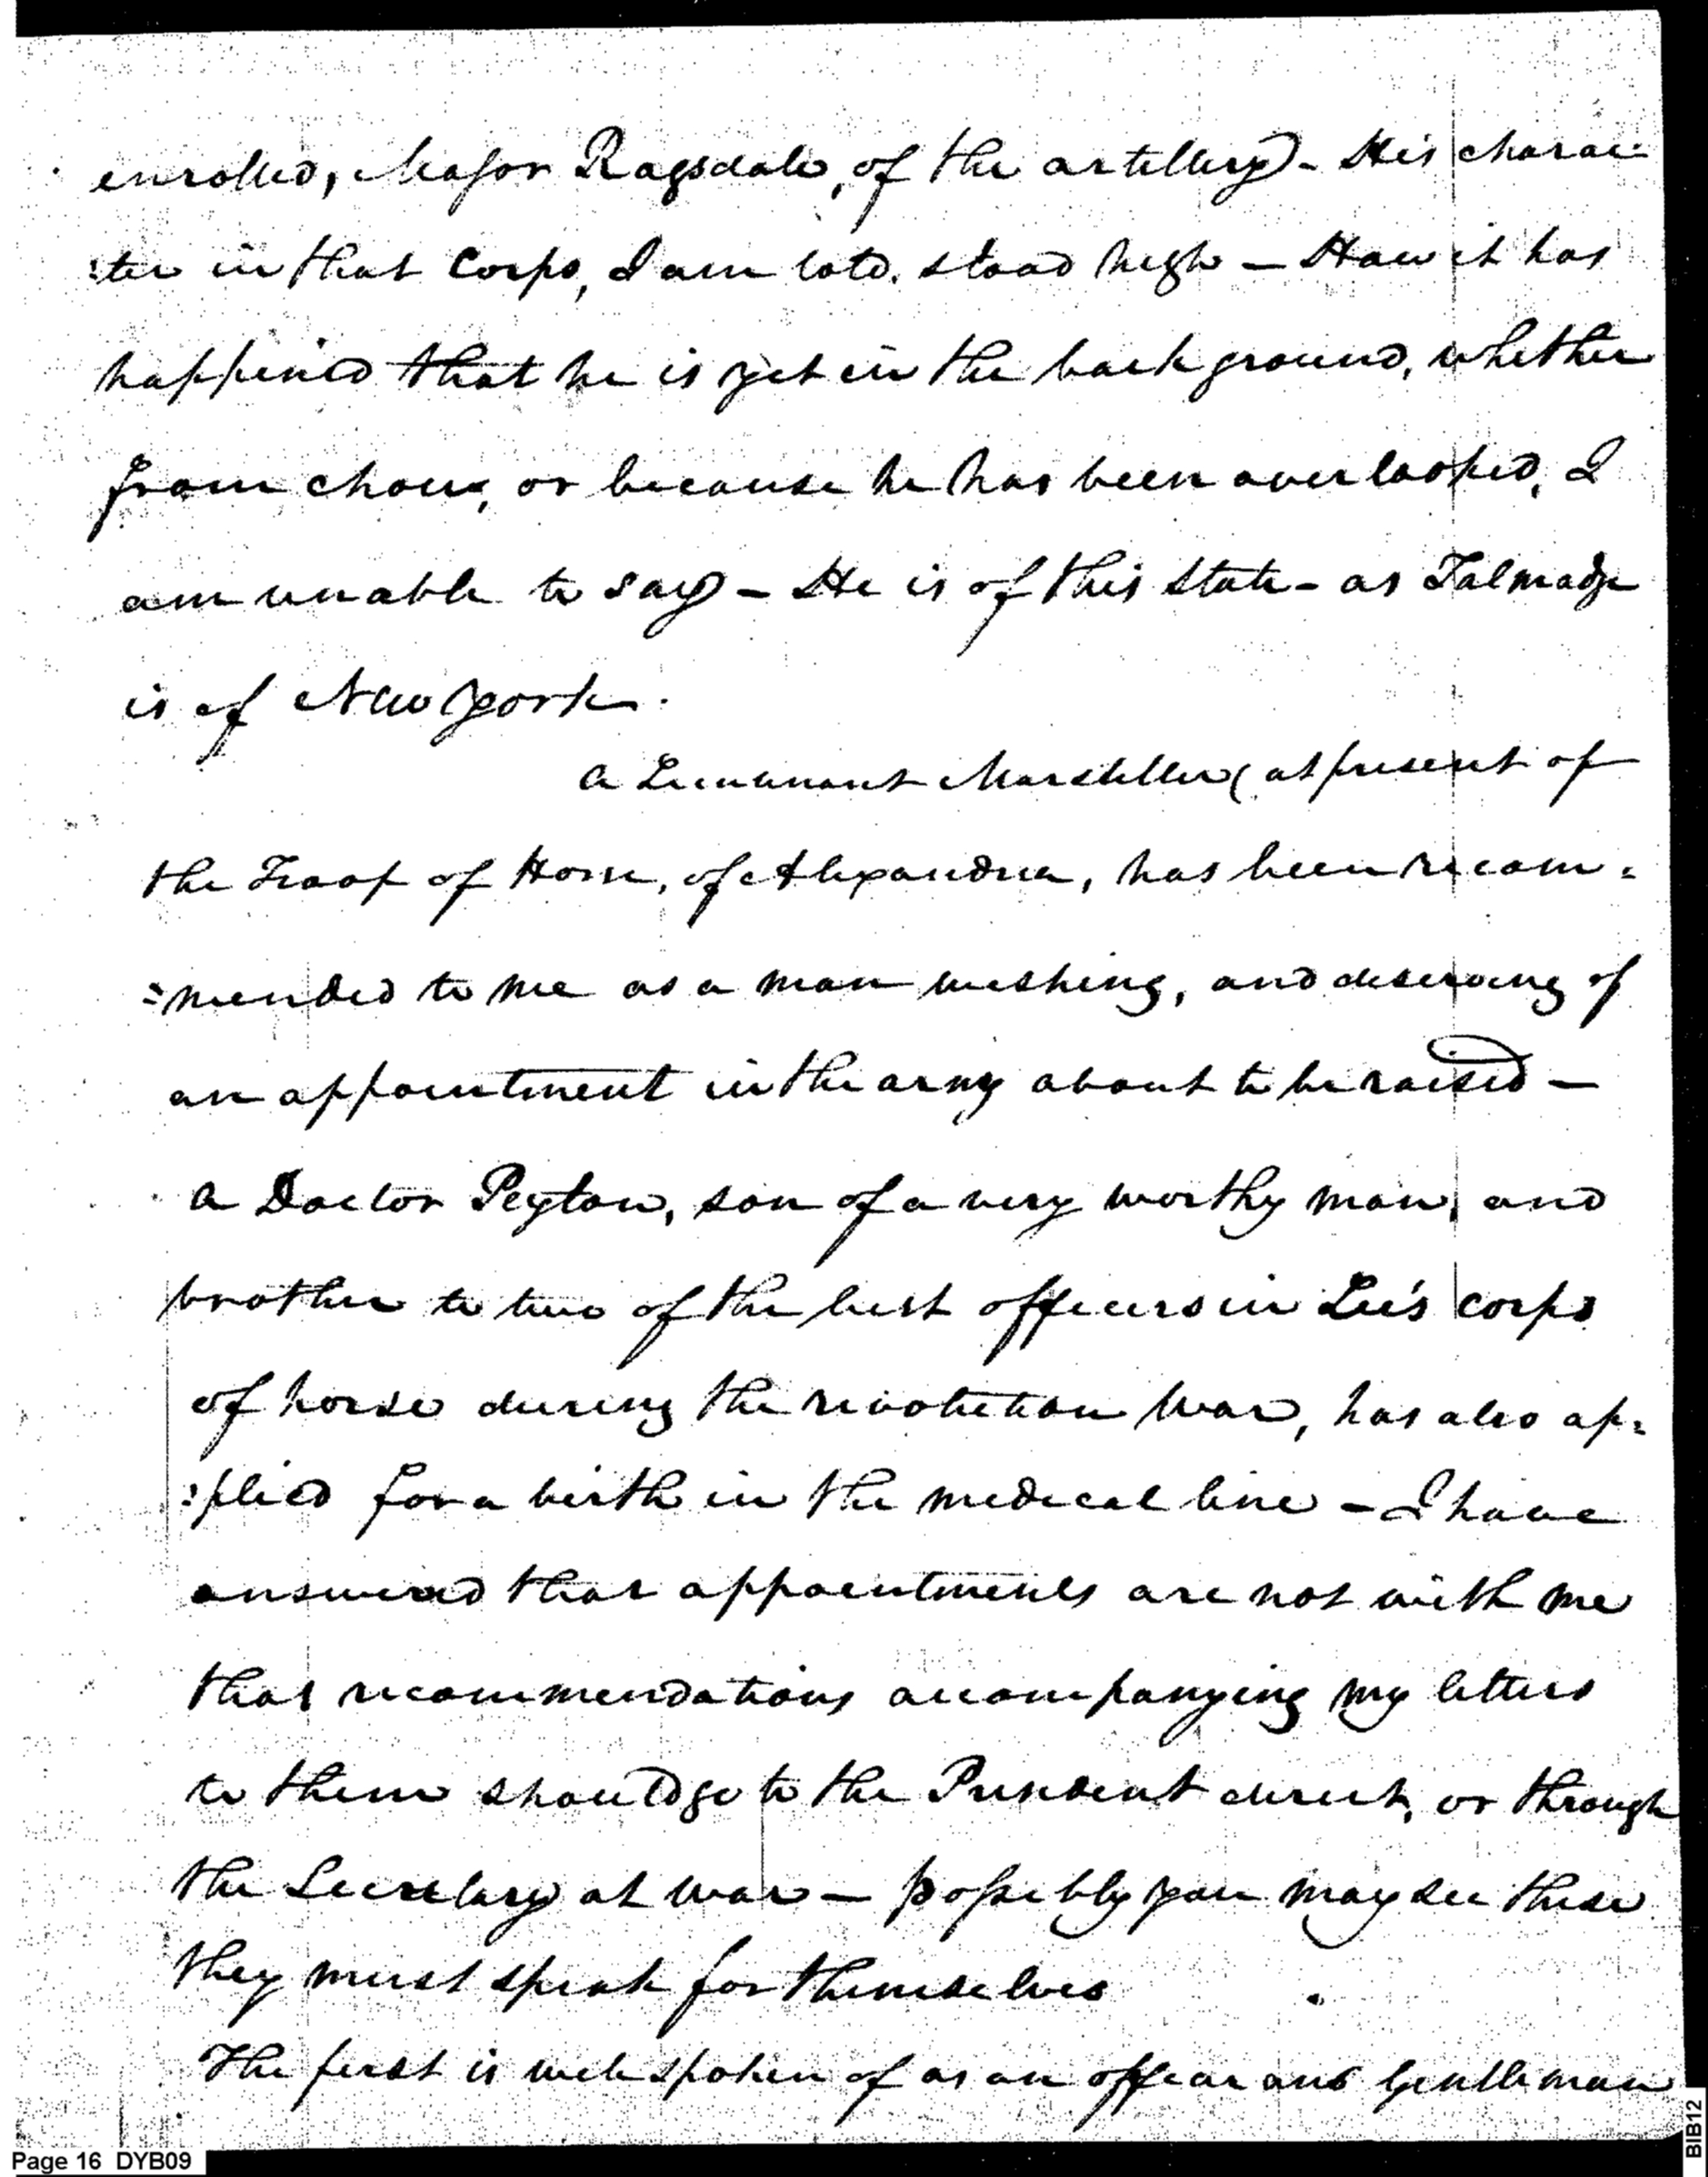 enrolled, Major Ragsdale, of the artillery) - His charac:
:ter in that Corps, I am told. stood high — How it has
happened that he is yet in the back ground, whether
from choice, or because he has been overlooked, I
am unable to say — He is of this State - as Talmadge
is of New york.
A Lieutenant Marsteller (at present of
the Troop of Horse, of Alexandria, has been recom=
=mended to me as a man wishing, and deserving of
an appointment in the army about to be raised —
A Doctor Peyton, son of a very worthy man, and
brother to two of the best officers in Lee's corps
of horse during the revolution War, has also ap=
:plied for a birth in the medical line — I have
answered that appointments are not with me
that recommendations accompanying my letters
to them should go to the President direct, or through
the Secretary at War — possibly you may see these
they must speak for themselves
The first is well spoken of as an officer and Gentleman
Page 16 DYB09
BIB12